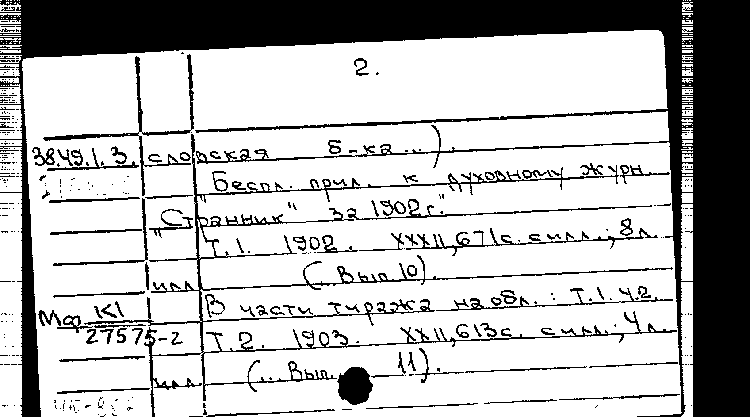 2.
3849.1.3. словская б-ка ...).
"Беспл. прил. к духовному журн.
"Странник" за 1902 г."
Т.1. 1902. XXXII, 671с. с илл.; 8 л.
илл (... Вып 10).
В части тиража на обл.: Т.1. Ч.2.
Мф K1
27575-2 Т.2. 1903. XXII, 613с. с илл.; 4 л.
илл (... Вып. 11).